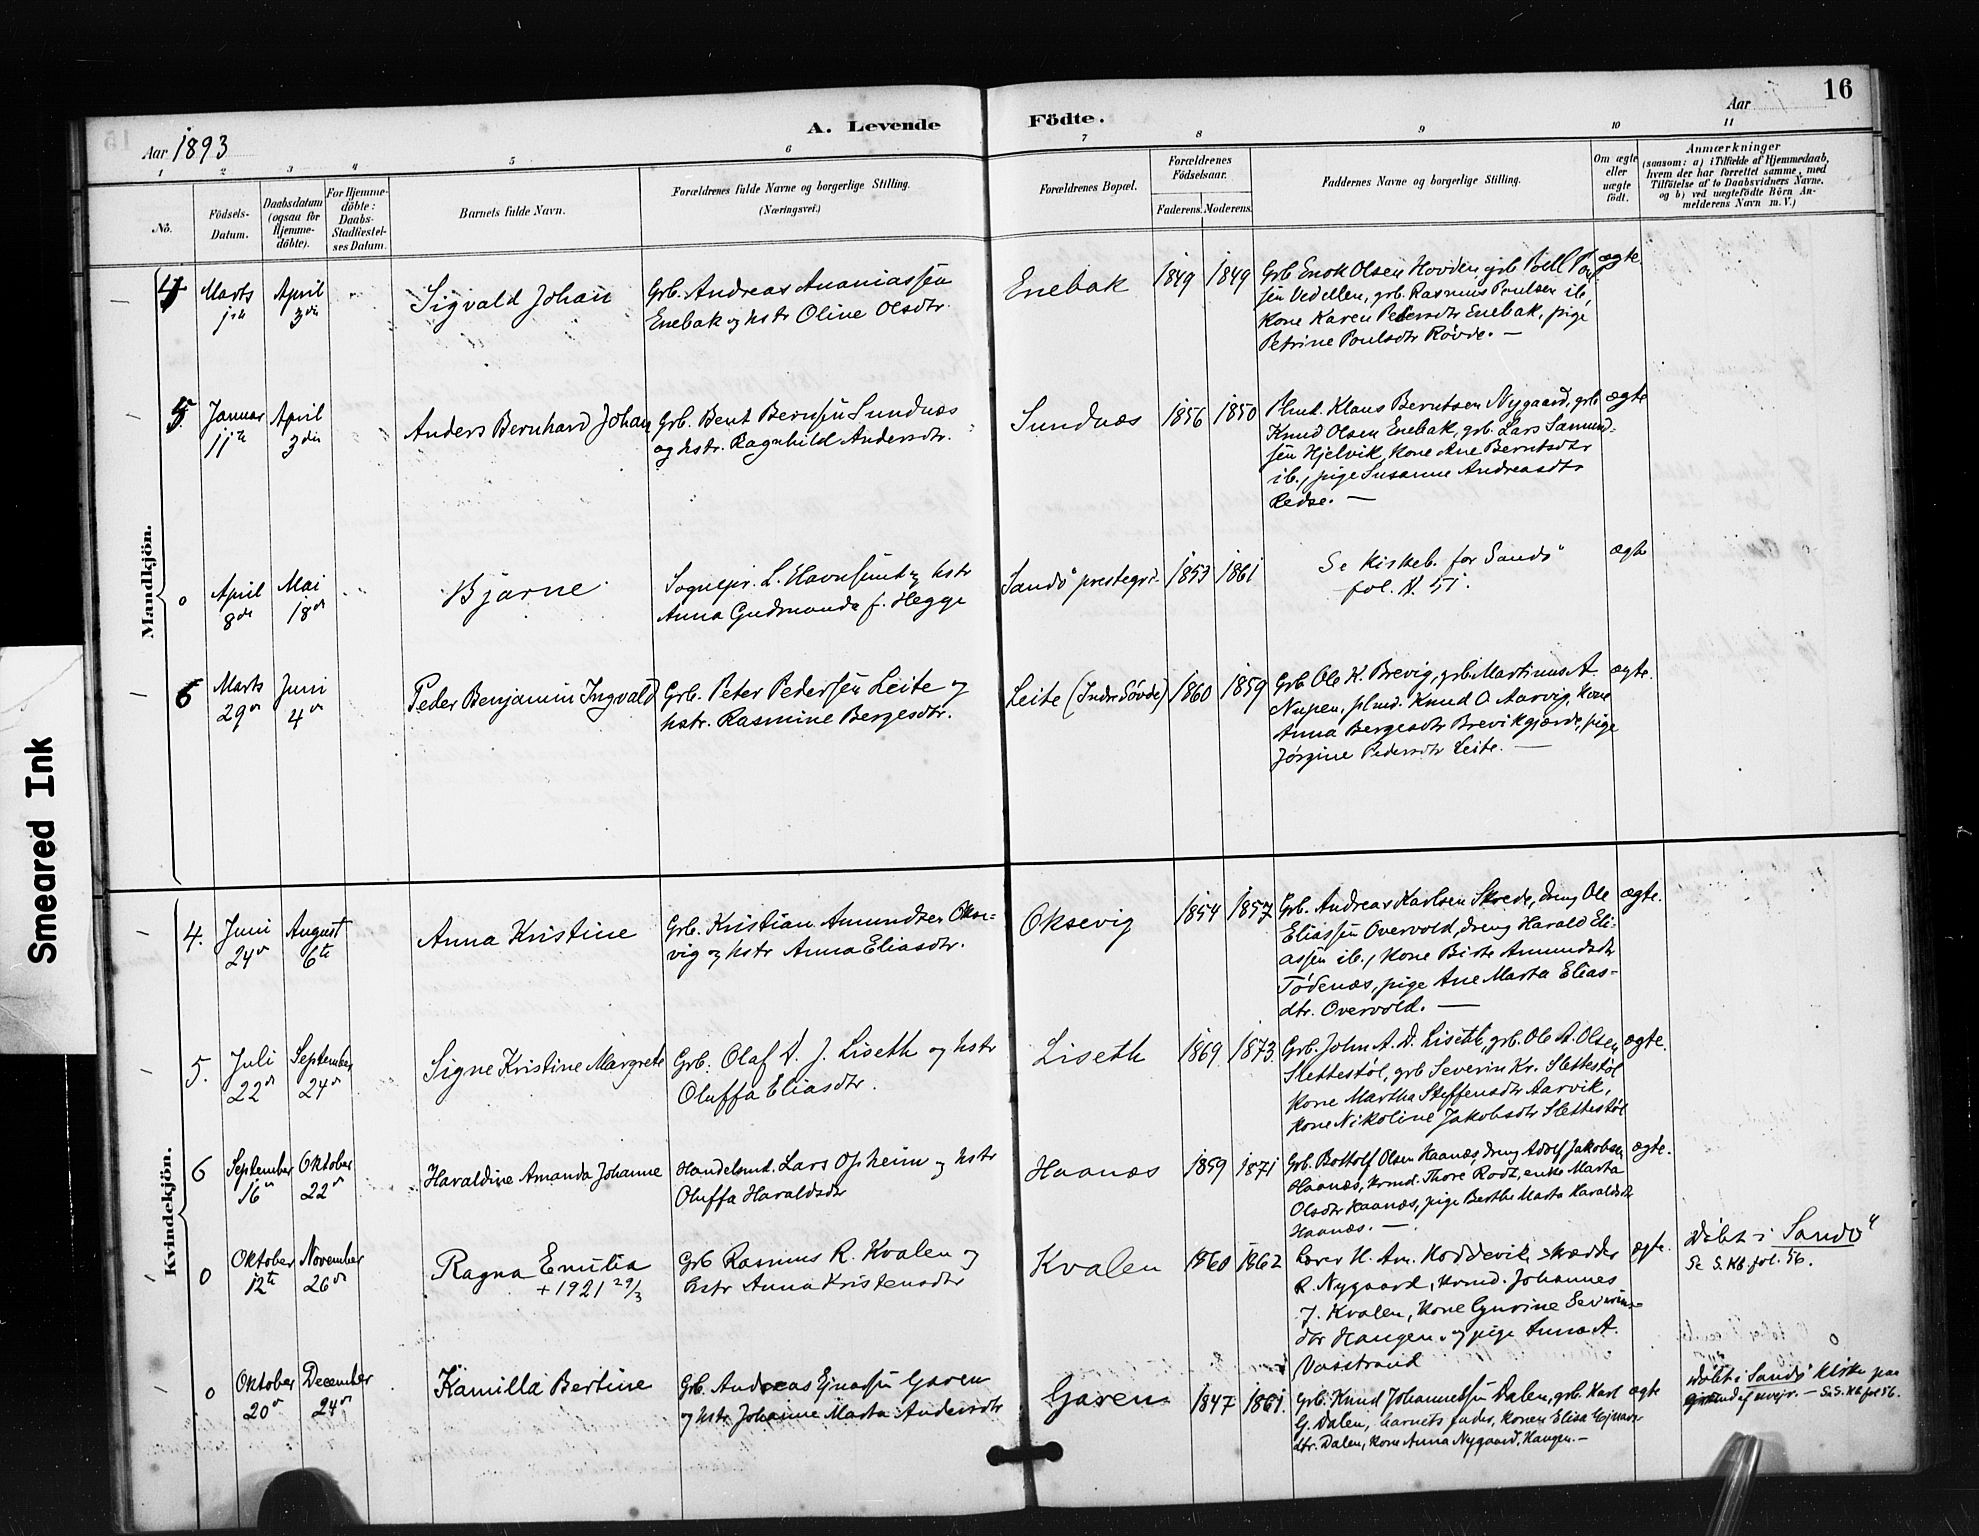 16
Aar 1893
A. Levende Födte.
Aar
1 2 3 4 5 6 7 8 9 10 11
No.
Födsels-Datum.
Daabsdatum (ogsaa for Hjemmedöbte).
For Hjemmedöbte: Daabs-Stadfæstelses Datum.
Barnets fulde Navn.
Forældrenes fulde Navne og borgerlige Stilling. (Næringsvei.)
Forældrenes Bopæl.
Forældrenes Födselsaar.
Faderens. Moderens.
Faddernes Navne og borgerlige Stilling.
Om ægte eller uægte födt.
Anmærkninger
(saasom: a) i Tilfælde af Hjemmedaab, hvem der har forrettet samme, med Tilföielse af to Daabsvidners Navne, og b) ved uægtefödte Börn Anmelderens Navn m. V.)
Mandkjön.
4 Marts April Sigvald Johan Grb. Andreas Ananiassen Enebak 1849 1849 Grb Enok Olsen Hovden, grb Poul ægte.
3die Enebak og hstr Oline Olsdtr. sen Vedellen, grb. Rasmus Poulsen ib,
Kone Karen Pedersdtr Enebak, pige
Petrine Poulsdtr Røvde. —
5 Januar April Anders Bernhard Johan Grb. Bent Berntsen Sundnæs Sundnæs 1856 1850 Plmd. Klaus Berntsen Nygaard, grb ægte
11te 3die og hstr. Ragnhild Andersdtr. Knud Olsen Enebak, grb. Lars Samund-
sen Hjelvik, Kone Ane Berntsdtr
ib., pige Susanne Andreasdtr
Redse. —
0 April Mai Bjarne Sognepr. L. Havnsund og hstr Sandö prestegr. 1853 1861 Se Kirkeb. for Sandö ægte
8de 18de Anna Gudmunda f. Hegge fol. 51.
6 Marts Juni Peder Benjamin Ingvald Grb. Peter Pedersen Leite og Leite (Indr. Søvde) 1860 1859 Grb Ole K. Brevig, grb Martinus A. ægte.
29de 4de hstr. Rasmine Bergesdtr. Nupen, plmd. Knud O Aarvig, Kone
Anna Bergesdtr Brevikgjærde, pige
Jørgine Pedersdtr Leite. —
Kvindekjön.
4. Juni August Anna Kristine Grb. Kristian Amundsen Okse- Oksevig 1854 1857 Grb. Andreas Karlsen Skrede, dreng Ole ægte.
24de 6te vig og hstr Anna Eliasdtr. Eliassen Overvold, dreng Harald Eli-
assen ib., Kone Birte Amundsdtr
Tødenæs, pige Ane Marta Elias-
dtr. Overvold. —
5. Juli September Signe Kristine Margrete Grb. Olaf A. J. Liseth og hstr Liseth 1869 1873. Grb. John A. D. Liseth, grb. Ole A. Olsen ægte.
22de 24de Oluffa Eliasdtr. Slettestøl, grb Severin Kr. Slettestøl
Kone Martha Steffensdtr Aarvik,
Kone Nikoline Jakobsdtr Slettestøl
6 September Oktober Haraldine Amanda Johanne Handelsmd. Lars Opheim og hstr Haanæs 1859 1871 Grb. Bottolf Olsen Haanæs, dreng Adolf Jakobsen ægte.
16de 22de Oluffa Haraldsdtr Haanæs, Thore Rodt, enke Marta
Olsdtr Haanæs, pige Berthe Marta Haraldsdtr
Haanæs. —
0 Oktober November Ragna Emilia Grb Rasmus R. Kvalen og Kvalen 1860 1862 Lærer H. Am. Hoddevik, skrædder ægte. Döbt i Sandö
12te 26de + 1921 29/3 hstr Anna Kristensdtr R. Nygaard, Johannes Se S. Kb. fol. 56.
J. Kvalen, Kone Gurine Severins-
dtr Haugen og pige Anna A.
Vasstrand
0 Oktober December Kamilla Bertine Grb. Andreas Ejnarsen Garen Garen 1847 1861. Grb. Knud Johannessen Dalen, grb. Karl ægte Döbt i Sandö Kirke paa
20de 24de og hstr Johanne Marta Andersdtr G. Dalen, barnets fader, Konen Elisa Ejnars- grund af uvejr. — Se S. Kb. fol 56.
dtr. Dalen, Kone Anna Nygaard, Haugen. —
Smeared Ink